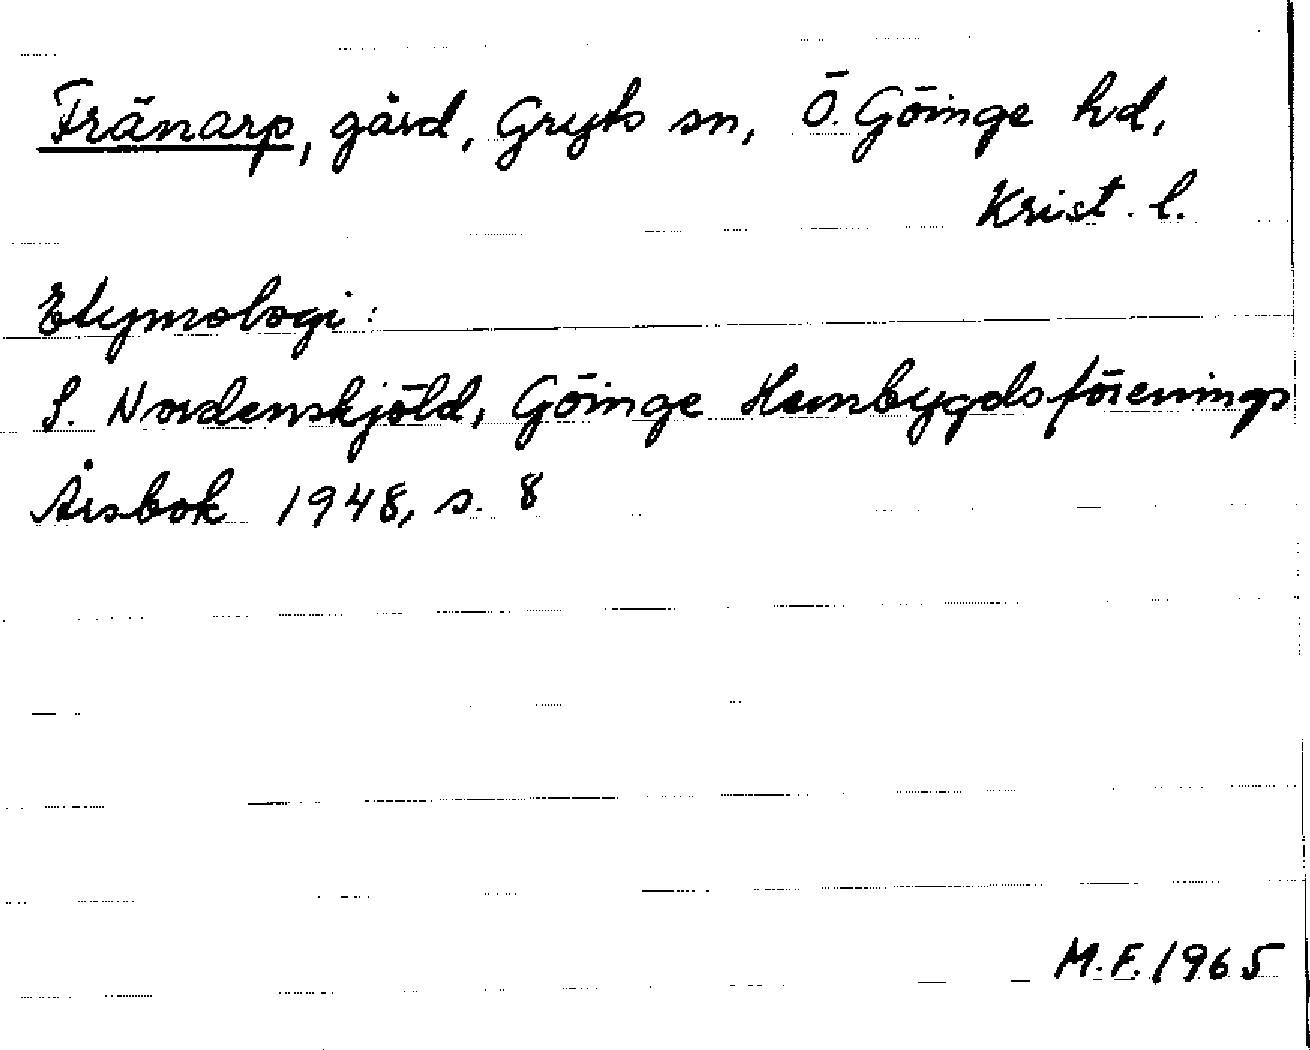 Fränarp, gård, Gryts sn, Ö. Göinge hd,
Krist. l.
Etymologi:
S. Nordenskjöld, Göinge Hembygdsförenings
Årsbok 1948, s. 8
M.F. 1965